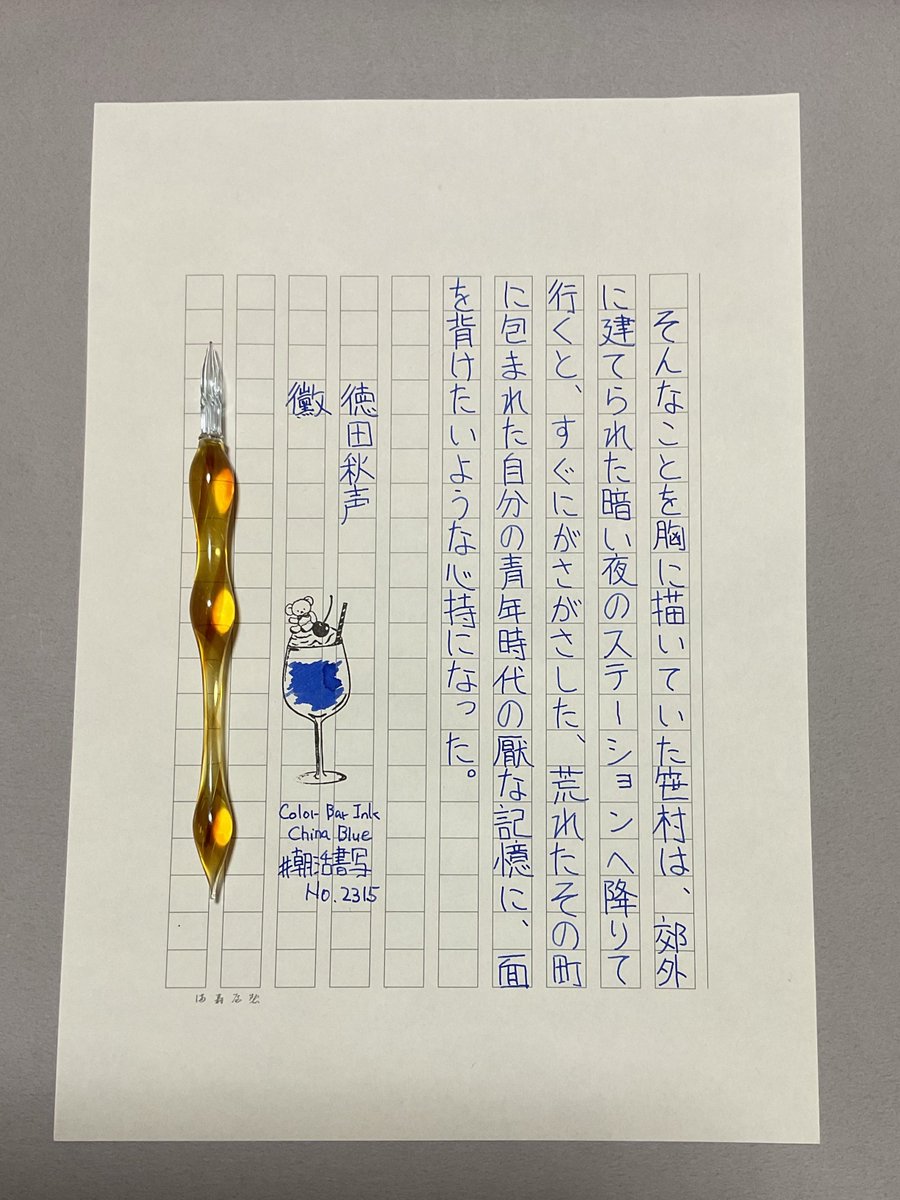 そんなことを胸に描いていた笹村は、郊外
に建てられた暗い夜のステーションへ降りて
行くと、すぐにがさがさした、荒れたその町
に包まれた自分の青年時代の厭な記憶に、面
を背けたいような心持になった。
徳田秋声
黴
Color Bar Ink
China Blue
#朝活書写
No.2315